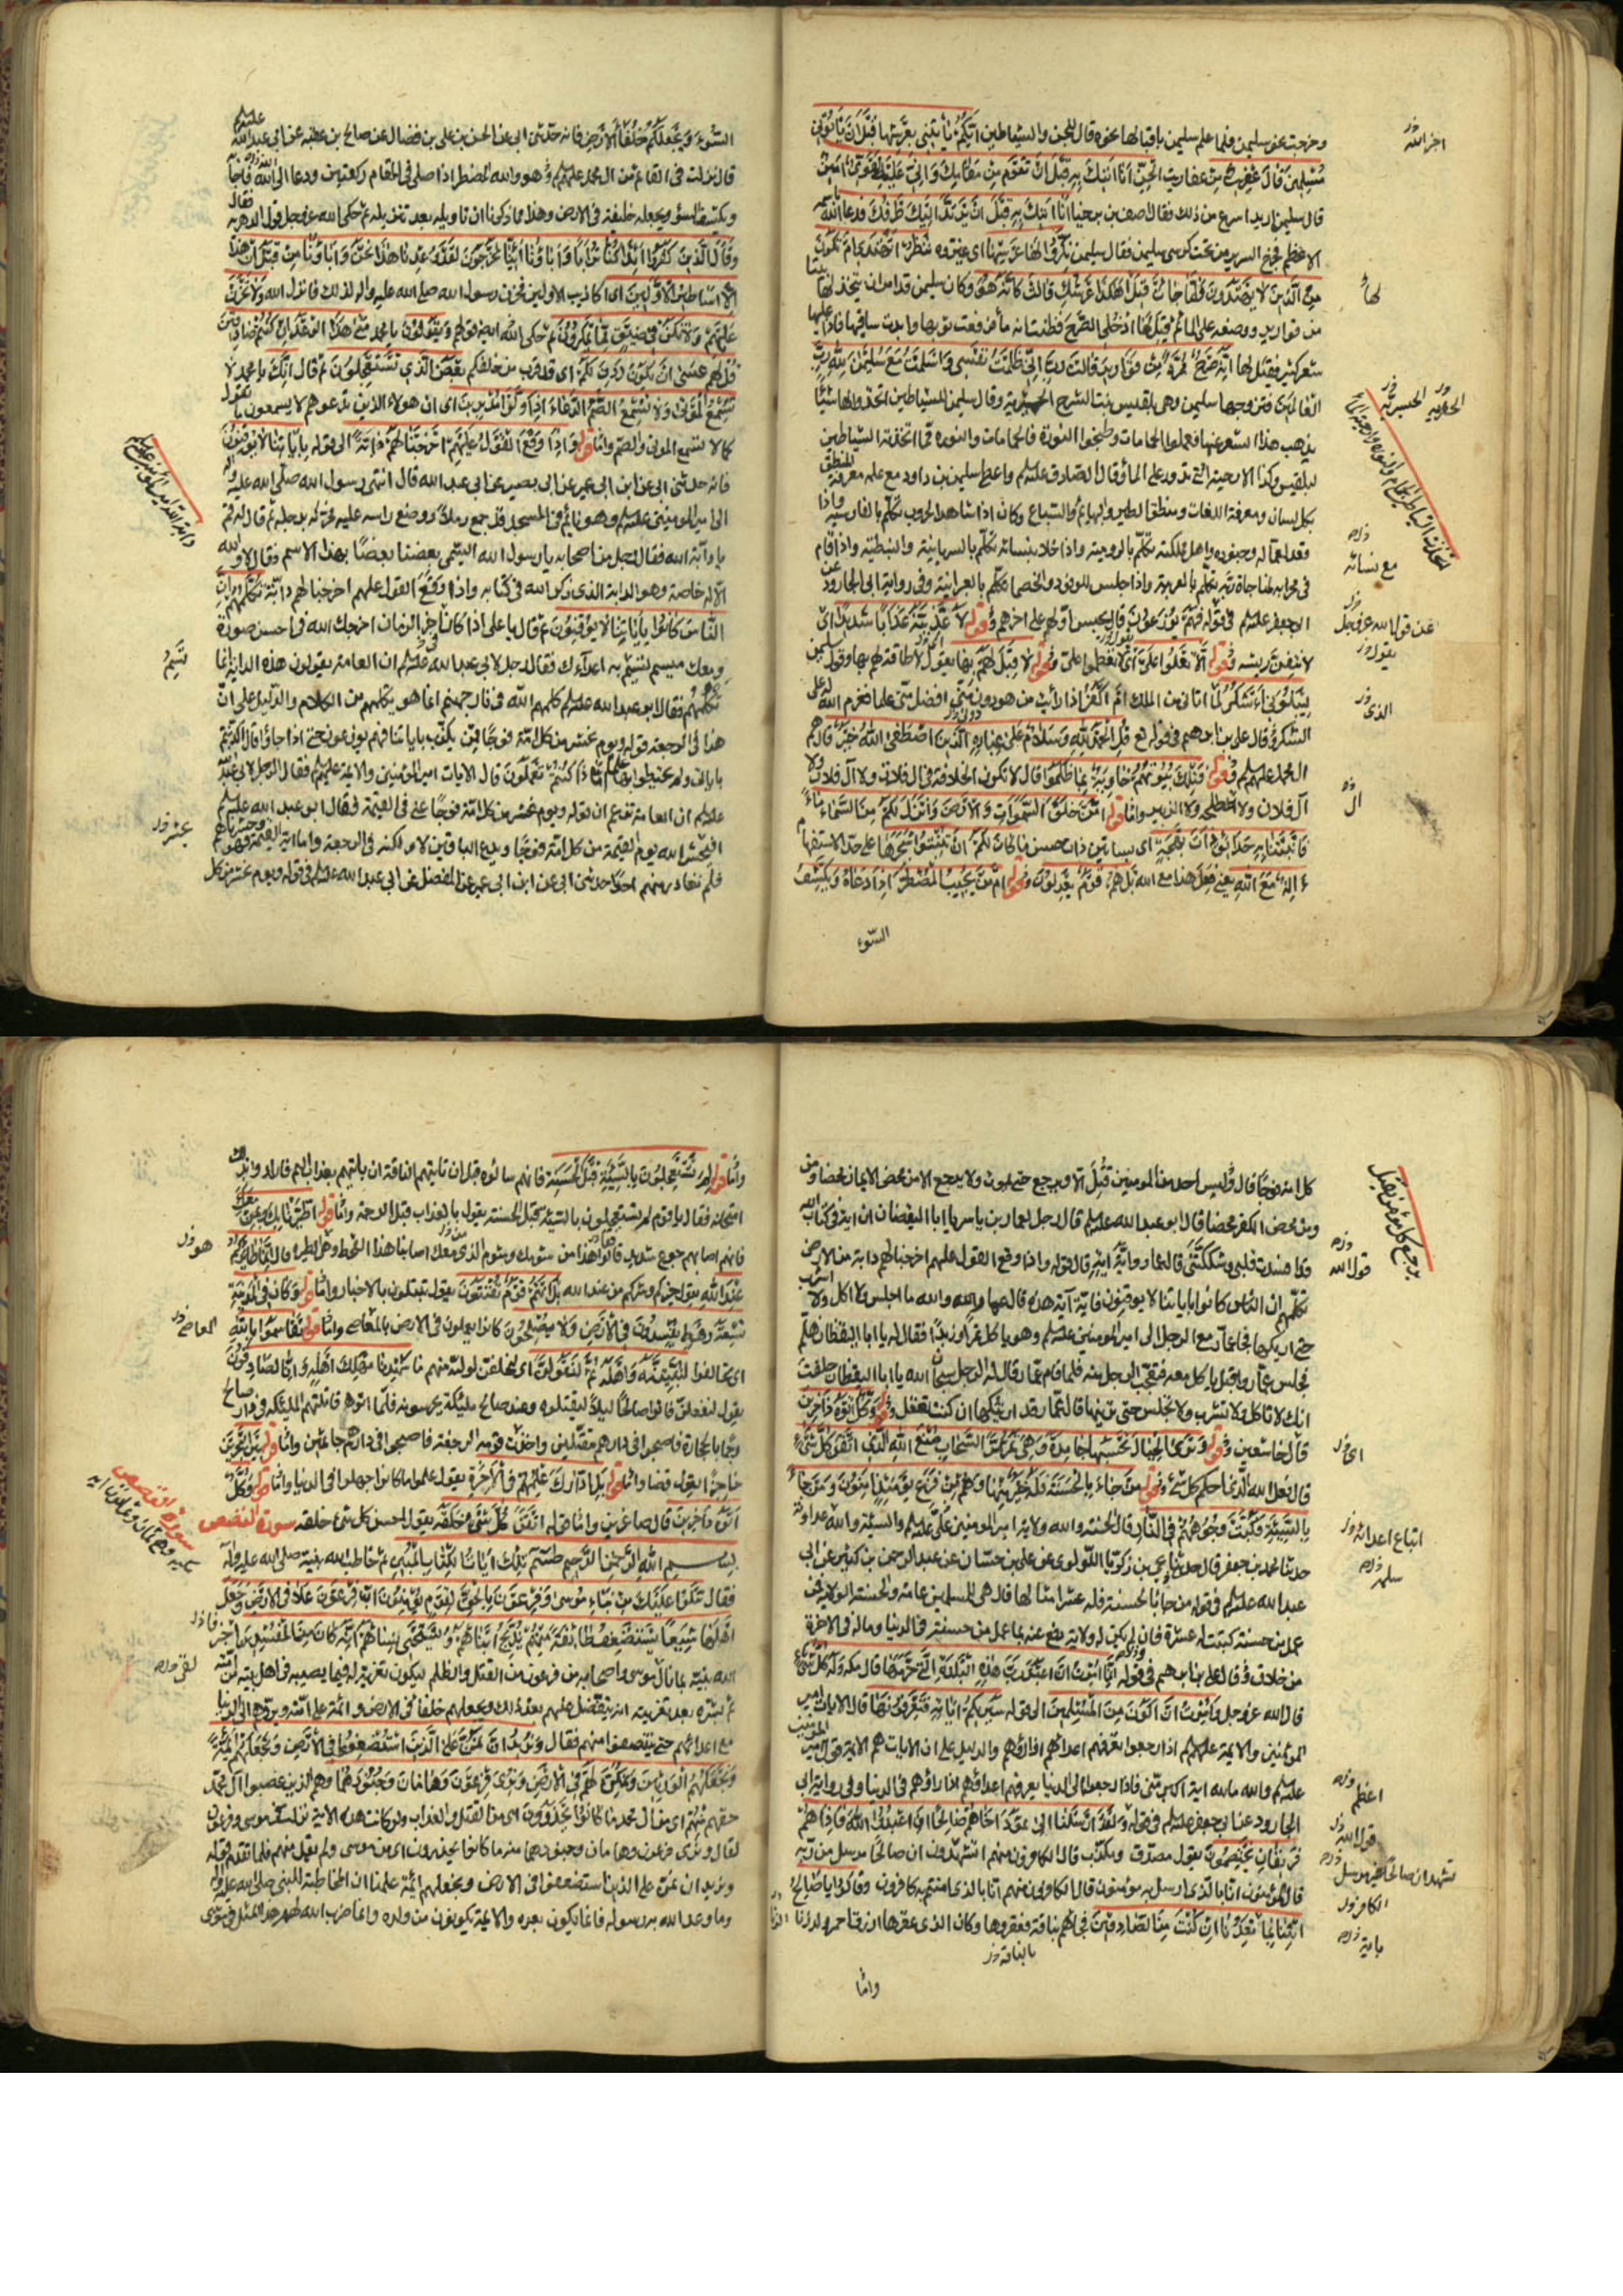 وخرجت نحو سليمن فلما علم سليمن باقبالها نحوه قال للجن والشياطين ايكم ياتيني بعرشها قبل ان ياتوني
مسلمين قال عفريت من عفاريت الجن انا اتيك به قبل ان تقوم من مقامك واني عليه لقوي امين
قال سليمن اريد اسرع من ذلك فقال اصف بن برخيا انا اتيك به قبل ان يرتد اليك طرفك فدعا الله باسمه
الاعظم فخرج السرير من تحت كرسي سليمن فقال سليمن نكروا لها عرشها اي غيروه ننظر اتهتدي ام تكون
من الذين لا يهتدون فلما جائت قيل اهكذا عرشك قالت كانه هو وكان سليمن قد امر ان يتخذ لها بيتا
من قوارير ووضعه على الماء ثم قيل لها ادخلي الصرح فظنت انه ماء فرفعت ثوبها وابدت ساقيها فاذا عليها
شعر كثير فقيل لها انه صرح ممرد من قوارير قالت رب اني ظلمت نفسي واسلمت مع سليمن لله رب
العالمين فتزوجها سليمن وهي بلقيس بنت الشرح الحميرية وقال سليمن للشياطين اتخذوا لها شيئا
يذهب هذا الشعر عنها فعملوا الحمامات وطبخوا النورة فالحمامات والنورة مما اتخذته الشياطين
لبلقيس وكذا الارحية التي تدور على الماء وقال الصادق عليه السلم واعطي سليمن بن داود مع علمه معرفة المنطق
بكل لسان ومعرفة اللغات ومنطق الطير والبهايم والسباع وكان اذا شاهد الحروب تكلم بالفارسية واذا
قعد لعماله وجنوده واهل مملكته تكلم بالرومية واذا خلا بنسائه تكلم بالسريانية والنبطية واذا قام
في محرابه لمناجاة ربه تكلم بالعربية واذا جلس للوفود والخصماء تكلم بالعبرانية وفي رواية ابي الجارود عن
ابي جعفر عليه السلم في قوله فهم يوزعون قال يحبس اولهم على اخرهم وقوله لاعذبنه عذابا شديدا اي
لانتفن ريشه وقوله الا تعلوا علي اي لا تعظموا علي وقوله لا قبل لهم بها يقول لا طاقة لهم بها وقول سليمن
ليبلوني ءاشكر لما اتاني من الملك ام اكفر اذا رايت من هو دون مني افضل مني علما فعزم الله له على
الشكر وقال علي بن ابرهيم في قوله تع قل الحمد لله وسلام على عباده الذين اصطفى الله خير قال هم
ال محمد عليهم السلم وقوله فتلك بيوتهم خاوية بما ظلموا قال لا تكون الخلافة في ال فلان ولا آل فلان ولا
آل فلان ولا طلحة ولا الزبير واما قوله امن خلق السموات والارض وانزل لكم من السماء ماء
فانبتنا به حدائق ذات بهجة اي بساتين ذات حسن ما كان لكم ان تنبتوا شجرها على حد الاستفهام
ءاله مع الله يعني فعل هذا مع الله بل هم قوم يعدلون وقوله امن يجيب المضطر اذا دعاه ويكشف
السوء
السوء ويجعلكم خلفاء الارض فانه حدثني ابي عن الحسن بن علي بن فضال عن صالح بن عقبة عن ابي عبد الله عليه السلم
قال نزلت في القائم من ال محمد عليهم السلم هو والله المضطر اذا صلى في المقام ركعتين ودعا الى الله فاجابه
ويكشف السوء ويجعله خليفة في الارض وهذا مما ذكرنا ان تاويله بعد تنزيله ثم حكى الله عز وجل قول الدهرية فقال
وقال الذين كفروا ائذا كنا ترابا واباؤنا ائنا لمخرجون لقد وعدنا هذا نحن واباؤنا من قبل ان هذا
الا اساطير الاولين اي اكاذيب الاولين فحزن رسول الله صلى الله عليه واله لذلك فانزل الله ولا تحزن
عليهم ولا تكن في ضيق مما يمكرون ثم حكى الله ايضا قولهم ويقولون يا محمد متى هذا الوعد ان كنتم صادقين
قل لهم عسى ان يكون ردف لكم اي قد قرب من خلفكم بعض الذي تستعجلون ثم قال انك يا محمد لا
تسمع الموتى ولا تسمع الصم الدعاء اذا ولوا مدبرين اي ان هولاء الذين تدعوهم لا يسمعون ما تقول
كما لا تسمع الموتى والصم واما قوله واذا وقع القول عليهم اخرجنا لهم دابة الى قوله باياتنا لا يوقنون
فانه حدثني ابي عن ابن ابي عمير عن ابي بصير عن ابي عبد الله قال انتهى رسول الله صلى الله عليه واله
الى امير المومنين عليه السلم وهو نائم في المسجد قد جمع رملا ووضع راسه عليه فحركه برجله ثم قال له قم
يا دابة الله فقال رجل من اصحابه يا رسول الله ايسمى بعضنا بعضا بهذا الاسم فقال لا والله
الا له خاصة وهو الدابة الذي ذكر الله في كتابه واذا وقع القول عليهم اخرجنا لهم دابة تكلمهم ان
الناس كانوا باياتنا لا يوقنون ثم قال يا علي اذا كان اخر الزمان اخرجك الله في احسن صورة
ومعك ميسم تسم به اعداءك فقال رجل لابي عبد الله عليه السلم ان العامة يقولون هذه الدابة انما
تكلمهم فقال ابو عبد الله عليه السلم كلمهم الله في نار جهنم انما هو يكلمهم من الكلام والدليل على ان
هذا في الرجعة قوله ويوم نحشر من كل امة فوجا ممن يكذب باياتنا فهم يوزعون حتى اذا جاؤا قال اكذبتم
باياتي ولم تحيطوا بها علما اماذا كنتم تعملون قال الايات امير المومنين والايمة عليهم السلم فقال الرجل لابي عبد الله
عليه السلم ان العامة تزعم ان قوله ويوم نحشر من كل امة فوجا عنى في القيمة فقال ابو عبد الله عليه السلم
افيحشر الله يوم القيمة من كل امة فوجا ويدع الباقين لا ولكنه في الرجعة واما اية القيمة فهو وحشرناهم
فلم نغادر منهم احدا حدثني ابي عن ابن ابي عمير عن المفضل عن ابي عبد الله عليه السلم في قوله ويوم نحشر من كل
كل امة فوجا قال وليس احد من المومنين قتل الا ويرجع حتى يموت ولا يرجع الا من محض الايمان محضا ومن
ومن محض الكفر محضا قال ابو عبد الله عليه السلم قال رجل لعمار بن ياسر يا ابا اليقضان ان اية في كتاب الله
قد افسدت قلبي وشككتني قال عمار واية اية قال قوله واذا وقع القول عليهم اخرجنا لهم دابة من الارض
تكلمهم ان الناس كانوا باياتنا لا يوقنون فاية آية هذه قال عمار والله ما اجلس ولا اكل ولا اشرب
حتى اريكها فجاء عمار مع الرجل الى امير المومنين عليه السلم وهو ياكل تمرا وزبدا فقال له يا ابا اليقظان هلم
فجلس عمار واقبل ياكل معه فتعجب الرجل منه فلما قام عمار قال له الرجل سبحان الله يا ابا اليقظان حلفت
انك لا تاكل ولا تشرب ولا تجلس حتى ترينيها قال عمار قد اريتكها ان كنت تعقل وقوله وكل اتوه داخرين
قال خاشعين وقوله وترى الجبال تحسبها جامدة وهي تمر مر السحاب صنع الله الذي اتقن كل شيء
قال فعل الله الذي احكم كل شيء وقوله من جاء بالحسنة فله خير منها وهم من فزع يومئذ امنون ومن جاء
بالسيئة فكبت وجوههم في النار قال الحسنة والله ولاية امير المومنين علي عليه السلم والسيئة والله عداوته
حدثنا محمد بن جعفر قال حدثنا يحيى بن زكريا اللؤلوي عن علي بن حسان عن عبد الرحمن بن كثير عن ابي
عبد الله عليه السلم في قوله من جاء بالحسنة فله عشر امثالها قال هي للمسلمين عامة والحسنة الولاية فمن
عمل من حسنة كتبت له عشرة فان لم يكن له ولاية دفع عنه بما عمل من حسنة في الدنيا وماله في الاخرة
من خلاق وقال علي بن ابرهيم في قوله انما امرت ان اعبد رب هذه البلدة الذي حرمها قال مكة وله كل شيء
قال الله عز وجل وامرت ان اكون من المسلمين الى قوله سيريكم اياته فتعرفونها قال الايات امير
المومنين والايمة عليهم السلم اذا رجعوا يعرفهم اعداؤهم اذا راوهم والدليل على ان الايات هم الايمة قول امير المومنين
عليه السلم والله ما لله اية اكبر مني فاذا رجعوا الى الدنيا يعرفهم اعداؤهم اذا راوهم في الدنيا وفي رواية ابي
الجارود عن ابي جعفر عليه السلم في قوله ولقد ارسلنا الى ثمود اخاهم صالحا ان اعبدوا الله فاذا هم
فريقان يختصمون يقول مصدق ومكذب قال الكافرون منهم اتشهدون ان صالحا مرسل من ربه
قال المؤمنون انا بالذي ارسل به مؤمنون قال الكافرون منهم انا بالذي امنتم به كافرون وقالوا يا صالح
ائتنا بما تعدنا ان كنت من الصادقين فجائهم بناقة فعقروها وكان الذي عقرها ازرق احمر ولد الزنا
واما
واما قوله لم تستعجلون بالسيئة قبل الحسنة فانهم سالوه قبل ان تاتيهم الناقة ان ياتيهم بعذاب اليم فاراد وا بذلك
امتحانه فقال يا قوم لم تستعجلون بالسيئة قبل الحسنة يقول بالعذاب قبل الرحمة واما قوله اطيرنا بك وبمن معك
فانهم اصابهم جوع شديد فقالوا هذا من شومك وشوم الذين معك اصابنا هذا القحط وهي الطيرة قال انما طائركم
عند الله يقول خيركم وشركم من عند الله بل انتم قوم تفتنون يقول تبتلون بالاختبار واما قوله وكان في المدينة
تسعة رهط يفسدون في الارض ولا يصلحون كانوا يعملون في الارض بالمعاصي واما قوله تقاسموا بالله
اي تحالفوا لنبيتنه واهله ثم لنقولن اي لنحلفن لوليه منهم ما شهدنا مهلك اهله وانا لصادقون
يقول لنفعلن فاتوا صالحا ليلا ليقتلوه وعند صالح مليئكة يحرسونه فلما اتوه قاتلتهم المليئكة في دار صالح
رجما بالحجارة فاصبحوا في دارهم مقتلين واخذت قومه الرجفة فاصبحوا في دارهم جاثمين واما قوله بين البحرين
حاجزا يقول فضا واما قوله بل ادارك علمهم في الاخرة يقول علموا ما كانوا جهلوا في الدنيا واما قوله وكل
اتوه داخرين قال صاغرين واما قوله اتقن كل شيء خلقه يقول احسن كل شيء خلقه سورة القصص
بسم الله الرحمن الرحيم طسم تلك ايات الكتاب المبين ثم خاطب الله نبيه صلى الله عليه واله
فقال نتلوا عليك من نباء موسى وفرعون بالحق لقوم يؤمنون ان فرعون علا في الارض وجعل
اهلها شيعا يستضعف طائفة منهم يذبح ابناءهم ويستحيي نساءهم انه كان من المفسدين
الله نبيه بما نال موسى واصحابه من فرعون من القتل والظلم ليكون تعزية له فيما يصيبه في اهل بيته من امته
ثم بشره بعد تعزيته انه يتفضل عليهم بعد ذلك ويجعلهم خلفا في الارض وائمة على امته ويردهم الى الدنيا
مع اعدائهم حتى ينتصفوا منهم فقال ونريد ان نمن على الذين استضعفوا في الارض ونجعلهم ائمة
ونجعلهم الوارثين ونمكن لهم في الارض ونرى فرعون وهامان وجنودهما وهم الذين غصبوا آل محمد
حقهم منهم اي من آل محمد ما كانوا يحذرون اي من القتل والعذاب ولو كانت هذه الاية نزلت في موسى وفرعون
لقال ونرى فرعون وهامان وجنودهما منه ما كانوا يحذرون اي من موسى ولم يقل منهم فلما تقدم قوله
ونريد ان نمن على الذين استضعفوا في الارض ونجعلهم ائمة علمنا ان المخاطبة للنبي صلى الله عليه واله
وما وعد الله به رسوله فانما يكون بعده والايمة يكونون من ولده وانما ضرب الله لهم هذا المثل في موسى